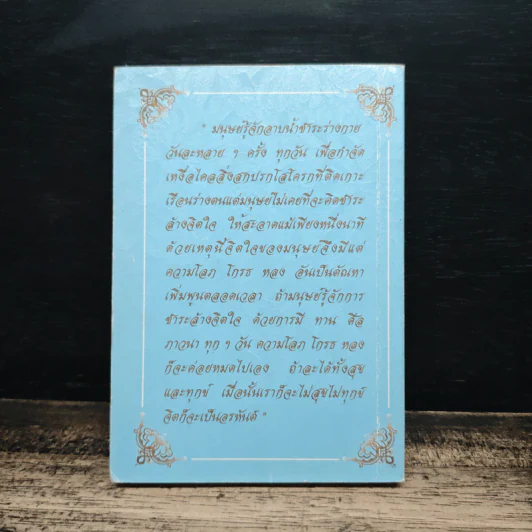 " มนุษย์รู้จักอาบน้ำชำระร่างกาย
วันละหลาย ๆ ครั้ง ทุกวัน เพื่อกำจัด
เหงื่อไคลสิ่งสกปรกโสโครกที่ติดเกาะ
เรือนร่างตนแต่มนุษย์ไม่เคยที่จะคิดชำระ
ล้างจิตใจ ให้สะอาดแม้เพียงหนึ่งนาที
ด้วยเหตุนี้จิตใจของมนุษย์จึงมีแต่
ความโลภ โกรธ หลง อันเป็นตัณหา
เพิ่มพูนตลอดเวลา ถ้ามนุษย์รู้จักการ
ชำระล้างจิตใจ ด้วยการมี ทาน ศีล
ภาวนา ทุก ๆ วัน ความโลภ โกรธ หลง
ก็จะค่อยหมดไปเอง ถ้าละได้ทั้งสุข
และทุกข์ เมื่อนั้นเราก็จะไม่สุขไม่ทุกข์
จิตก็จะเป็นอรหันต์ "